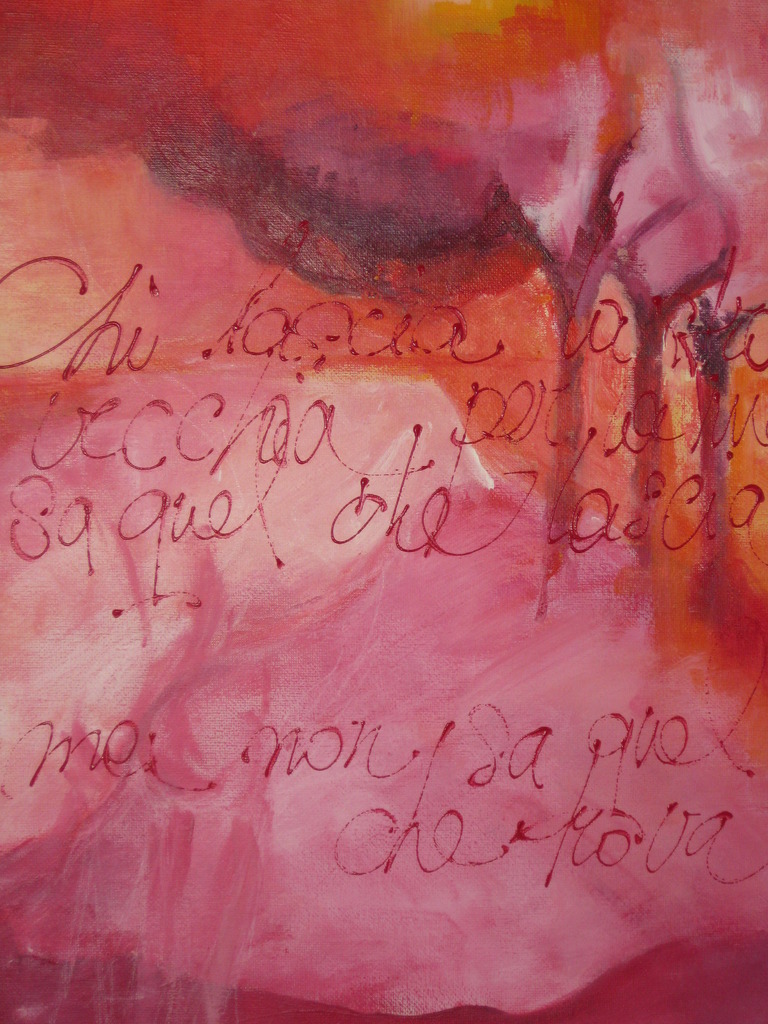 Chi lascia la
vecchia per la
sa quel che lascia
ma non sa quel
che trova